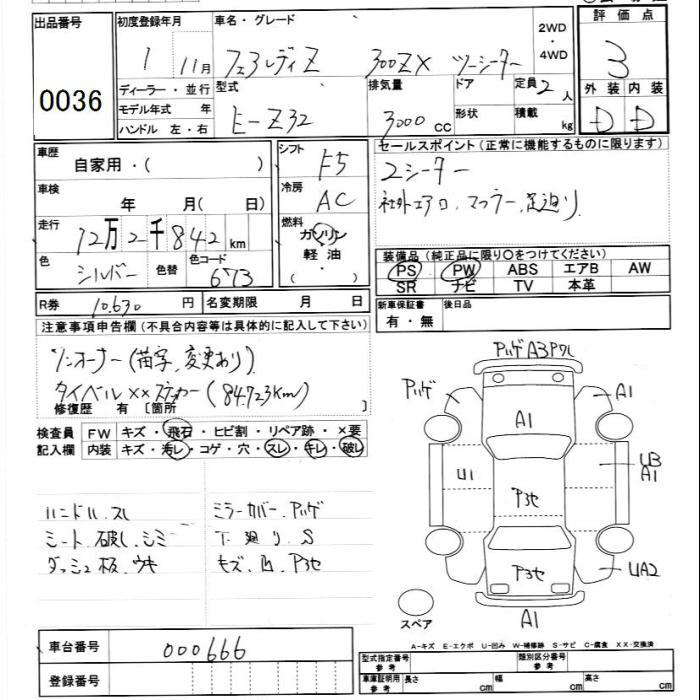 出品番号
0036
初度登録年月
1 11月
ディーラー・並行
モデル年式 年
ハンドル 左・右
車名・グレード
フェアレディZ 300ZX ツーシーター
2WD
・
4WD
型式
E-Z32
排気量
3000 CC
ドア
形状
定員 2 人
積載 kg
評価点
3
外装 内装
D D
車歴
自家用・( )
車検
年 月( 日)
走行
12万2千842 km
色
シルバー
色替
色コード
673
シフト
F5
冷房
AC
燃料
ガソリン
軽油・
( )
セールスポイント(正常に機能するものに限ります)
2シーター
社外エアロ、マフラー、足廻り
装備品(純正品に限り○をつけてください)
PS PW ABS エアB AW
SR ナビ TV 本革
新車保証書
有・無
後日品
R券 10,630 円
名変期限 月 日
注意事項申告欄(不具合内容等は具体的に記入して下さい)
ワンオーナー(苗字、変更あり)
タイベル××ステッカー(84,723km)
修復歴 有〔箇所 〕
検査員
記入欄
FW キズ・飛石・ヒビ割・リペア跡・×要
内装 キズ・汚レ・コゲ・穴・スレ・キレ・破レ
ハンドル スレ
シート 破レ・シミ
ダッシュ板、ウキ
ミラーカバー、ハゲ
下廻り、S
キズ、凹、P3セ
A3
A1
A1
U1
P3セ
UB
A1
P3セ
UA2
A1
スペア
A-キズ E-エクボ U-凹み W-補修跡 S-サビ C-腐食 XX-交換済
車台番号
000666
登録番号
型式指定番号
参考
類別区分番号
参考
車庫証明用
参考
長さ cm
幅 cm
高さ cm